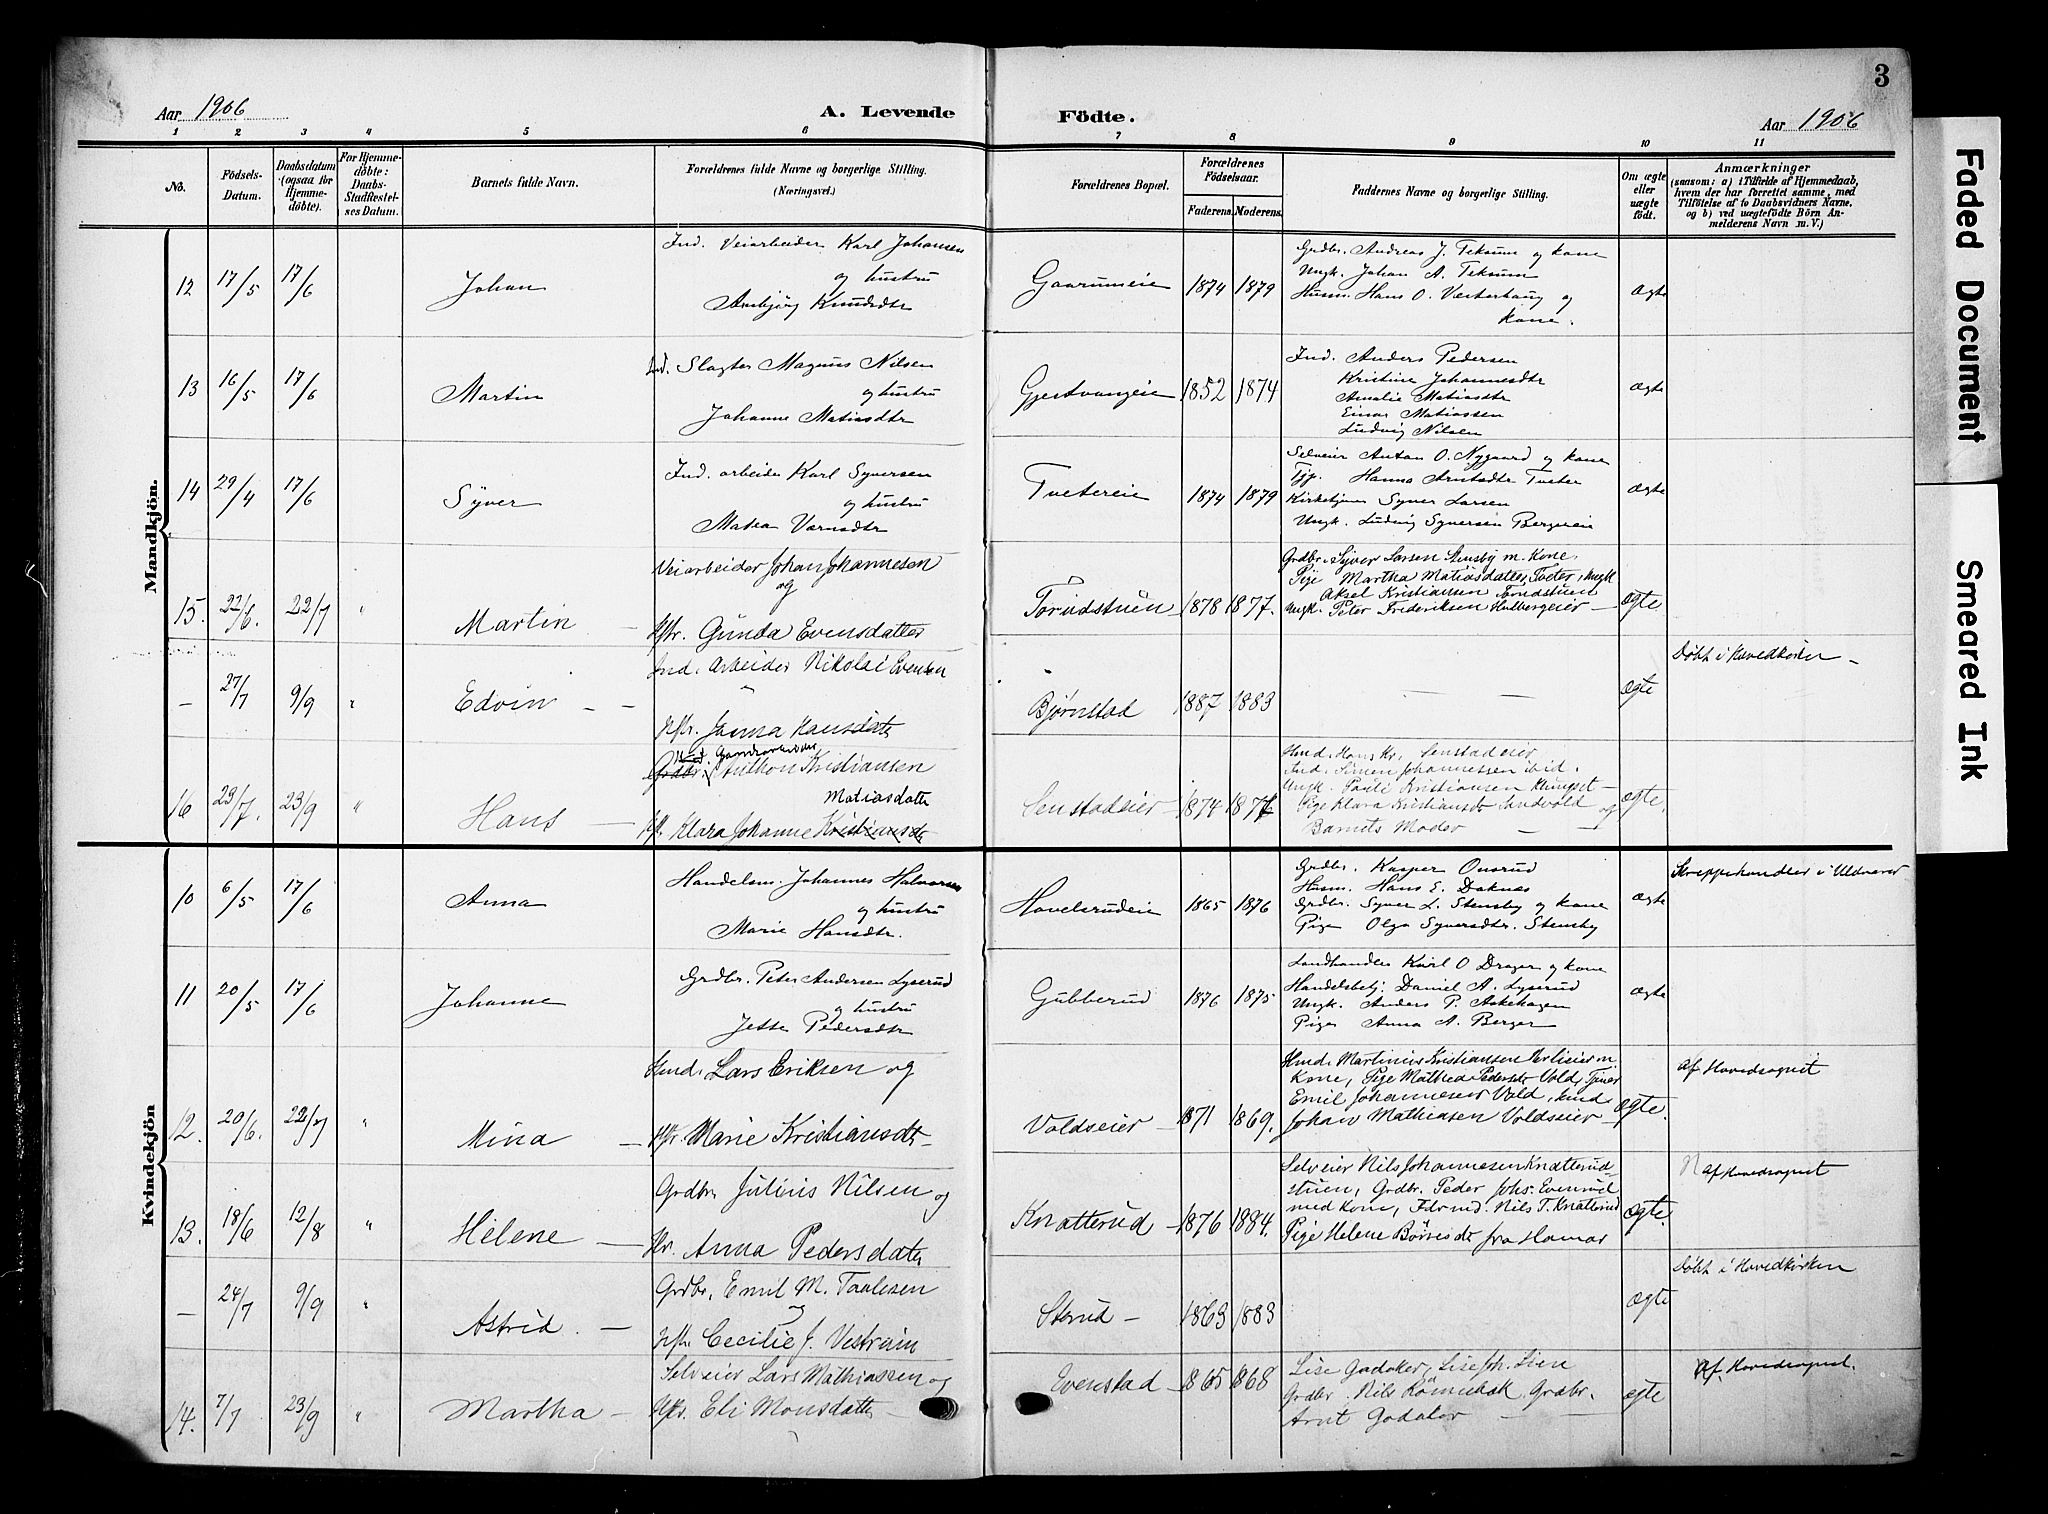 3
Aar 1906
A. Levende
Födte.
Aar 1906
1 2 3 4 5 6 7 8 9 10 11
No.
Födsels-
Datum.
Daabsdatum
(ogsaa for
Hjemme-
döbte).
For Hjemme-
döbte:
Daabs-
Stadfæstel-
ses Datum.
Barnets fulde Navn.
Forældrenes fulde Navne og borgerlige Stilling.
(Næringsvei.)
Forældrenes Bopæl.
Forældrenes
Födselsaar.
Faderens.
Moderens.
Faddernes Navne og borgerlige Stilling.
Om ægte
eller
uægte
födt.
Anmærkninger
(saasom: a) i Tilfælde af Hjemmedaab,
hvem der har forrettet samme, med
Tilföielse af to Daabsvidners Navne,
og b) ved uægtefödte Börn An-
melderens Navn m. V.)
Mandkjön.
12 17/5 17/6
Johan
Ind. Veiarbeider Karl Johansen
og hustru
Knudsdtr
Gaarumeie
1874 1879
Grdbr. Andreas J. Teksum og kone
Ungk. Johan A. Teksum
Husm. Hans O. Vesterhaug og
kone.
ægte
13 16/5 17/6
Martin
Ind. Slagter Magnus Nilsen
og hustru
Johanne Matiasdtr
Gjestvangeie
1852 1874
Ind. Anders Pedersen
Kristine Johannesdtr
Amalie Matiasdtr
Einar Matiassen
Ludvig Nilsen
ægte
14 29/4 17/6
Syver
Ind. arbeider Karl Syversen
og hustru
Matea
Tvetereie
1874 1879
Selveier Anton O. Nygaard og kone
Hanna Arnstadtr Tveter
Kirketjener Syver Larsen
Ungk. Ludvig Syversen Bergereie
ægte
15. 22/6. 22/7 "
Martin —
Veiarbeider Johan Johannesen
og
Hstr. Gunda Evensdatter
Torudstuen
1878 1877.
Grdbr. Syver Larsen Stensby m. Kone,
Pige Martha Mathiasdatter Tveter, Ungk.
Aksel Kristiansen
Ungk. Peter Frideriksen Hulbergeier —
ægte
— 27/7 9/9 "
Edvin — —
Ind. Arbeider Nikolai Evensen
Hstr. Janna Hansdatter
Bjørnstad
1887 1883
— —
ægte
Døbt i Hovedkirken —
16 23/7. 23/9 "
Hans —
Grdbr. Anthon Kristiansen
Matiasdatter
Klara Johanne Kristiansdtr
Senstadeier
1874 1877
Hmd. Hans Kr. Senstadeier
Ind. Simen Johannessen ibid.
Ungk. Pauli Kristiansen
Pige Klara Kristiansdtr Sandvold og
Barnets Moder — —
ægte.
Kvindekjön
10 6/5 17/6
Anna
Handelsm. Johannes Halvorsen
og hustru
Marie Hansdtr.
Hovelsrudeie
1865 1876
Grdbr. Kasper Onsrud
Husm. Hans E. Doknæs
Grdbr. Syver L. Stensby og kone
Pige Olga Syversdtr. Stensby
ægte
Skreppehandler i Uldvarer
11 20/5 17/6
Johanne
Grdbr. Peter Andersen Lyserud
og hustru
Pedersdtr
Gubberud
1876 1875
Landhandler Karl O Drager og kone
Handelsbetj. Daniel A. Lyserud
Ungk. Anders P. Askehagen
Pige Anna A. Berger
ægte
12. 20/6. 22/7 "
Mina —
Hmd. Lars Eriksen og
Hstr. Marie Kristiansdtr
Voldseier
1871 1869.
Hmd. Martinius Kristiansen m.
Kone, Pige Mathea Pedersdtr Vold, Tjener
Emil Johannesen Vold, hmd.
Johan Mathiasen Voldseier
ægte.
Af Hovedsognet
13. 18/6 12/8 "
Helene —
Grdbr Julius Nilsen og
Anna Pedersdatter
Knatterud
1876 1884.
Selveier Nils Johannesen Knatterud-
stuen, Grdbr. Peder Johs. Evenrud
med Kone, Nils T. Knatterud
Pige Helene fra Hamar
ægte.
Af Hovedsognet
— 24/7 9/9 "
Astrid. —
Grdbr. Emil M. Paulesen
Cecilie J. Vestrum
Sterud —
1863 1883
ægte
Døbt i Hovedkirken
14. 7/7 23/9 "
Martha —
Selveier Lars Mathiassen og
Hstr. Eli Monsdatter
Evenstad
1865 1868
Grdbr. Nils Grdbr.
Arnt —
ægte
Af Hovedsognet.
Faded Document
Smeared Ink